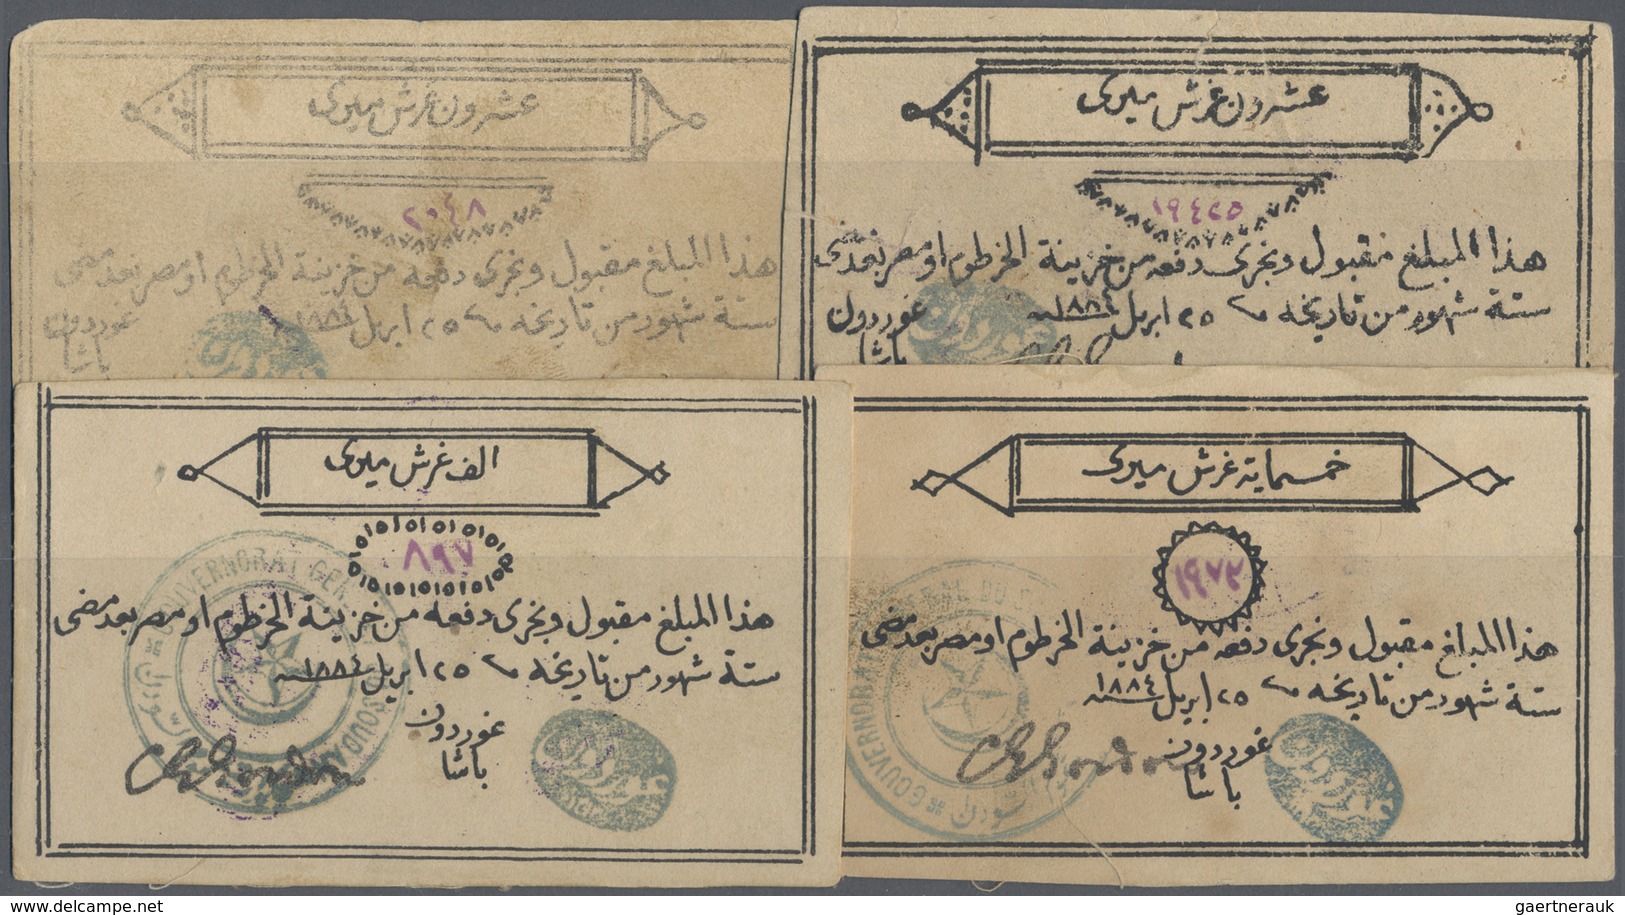 عشرون غرش ميرى
٢٠٤٨
هذا المبلغ مقبول ونجرى دفعه من خزينة الخرطوم او مصر بعد مضى
ستة شهور من تاريخه ٢٥ ابريل ١٨٨٤
غوردون
باشا
عشرون غرش ميرى
١٩٤٢٥
هذا المبلغ مقبول ونجرى دفعه من خزينة الخرطوم او مصر بعد مضى
ستة شهور من تاريخه ٢٥ ابريل ١٨٨٤
غوردون
باشا
الف غرش ميرى
٨٩٧
هذا المبلغ مقبول ونجرى دفعه من خزينة الخرطوم او مصر بعد مضى
ستة شهور من تاريخه ٢٥ ابريل ١٨٨٤
غوردون
باشا
C G Gordon
GOUVERNORAT GENERAL DU SOUDAN
خمسماية غرش ميرى
١٩٧٢
هذا المبلغ مقبول ونجرى دفعه من خزينة الخرطوم او مصر بعد مضى
ستة شهور من تاريخه ٢٥ ابريل ١٨٨٤
غوردون
باشا
C G Gordon
GOUVERNORAT
www.delcampe.net
gaertnerauk